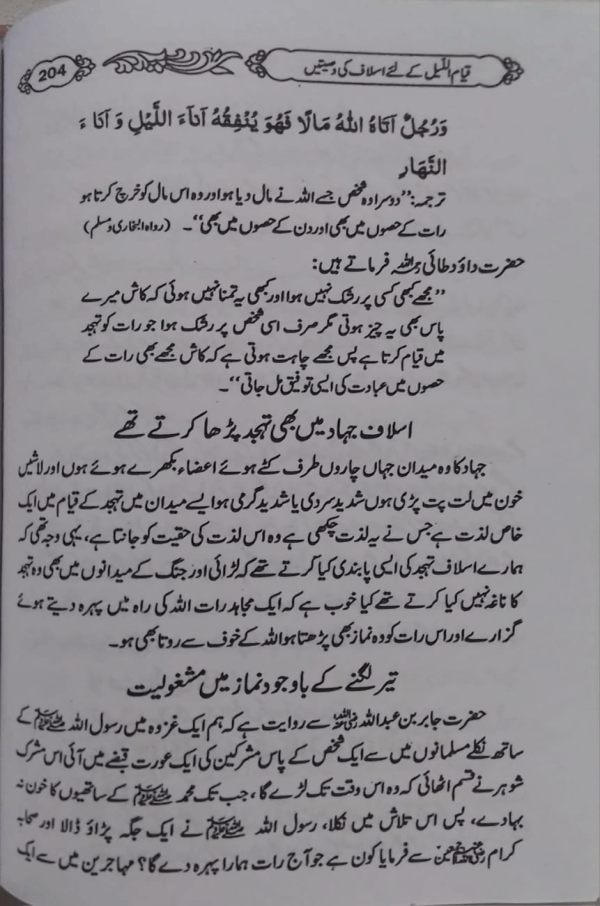 204
قیام اللیل کے لئے اسلاف کی وصیتیں
وَرُجُلٌ اٰتَاہُ اللّٰہُ مَالًا فَھُوَ یُنْفِقُہُ اٰنَآءَ اللَّیْلِ وَ آنَاءَ
النَّھَارِ
ترجمہ: ”دوسرا وہ شخص جسے اللہ نے مال دیا ہو اور وہ اس مال کو خرچ کرتا ہو
رات کے حصوں میں بھی اور دن کے حصوں میں بھی“۔ (رواہ البخاری و مسلم)
حضرت داؤد طائی رحمہ اللہ فرماتے ہیں:
”مجھے کبھی کسی پر رشک نہیں ہوا اور کبھی یہ تمنا نہیں ہوئی کہ کاش میرے
پاس بھی یہ چیز ہوتی مگر صرف اسی شخص پر رشک ہوا جو رات کو تہجد
میں قیام کرتا ہے پس مجھے چاہت ہوتی ہے کہ کاش مجھے بھی رات کے
حصوں میں عبادت کی ایسی توفیق مل جاتی“۔
اسلاف جہاد میں بھی تہجد پڑھا کرتے تھے
جہاد کا وہ میدان جہاں چاروں طرف کٹے ہوئے اعضاء بکھرے ہوئے ہوں اور لاشیں
خون میں لت پت پڑی ہوں شدید سردی یا شدید گرمی ہو ایسے میدان میں تہجد کے قیام میں ایک
خاص لذت ہے جس نے یہ لذت چکھی ہے وہ اس لذت کی حقیقت کو جانتا ہے، یہی وجہ تھی کہ
ہمارے اسلاف تہجد کی ایسی پابندی کیا کرتے تھے کہ لڑائی اور جنگ کے میدانوں میں بھی وہ تہجد
کا ناغہ نہیں کیا کرتے تھے کیا خوب ہے کہ ایک مجاہد رات اللہ کی راہ میں پہرہ دیتے ہوئے
گزارے اور اس رات کو وہ نماز بھی پڑھتا ہو اللہ کے خوف سے روتا بھی ہو۔
تیر لگنے کے باوجود نماز میں مشغولیت
حضرت جابر بن عبداللہ رضی اللہ عنہ سے روایت ہے کہ ہم ایک غزوہ میں رسول اللہ ﷺ کے
ساتھ نکلے مسلمانوں میں سے ایک شخص کے پاس مشرکین کی ایک عورت قبضے میں آئی اس مشرک
شوہر نے قسم اٹھائی کہ وہ اس وقت تک لڑے گا، جب تک محمد ﷺ کے ساتھیوں کا خون نہ
بہادے، پس اس تلاش میں نکلا، رسول اللہ ﷺ نے ایک جگہ پڑاؤ ڈالا اور صحابہ
کرام رضی اللہ عنہم اجمعین سے فرمایا کون ہے جو آج رات ہمارا پہرہ دے گا؟ مہاجرین میں سے ایک